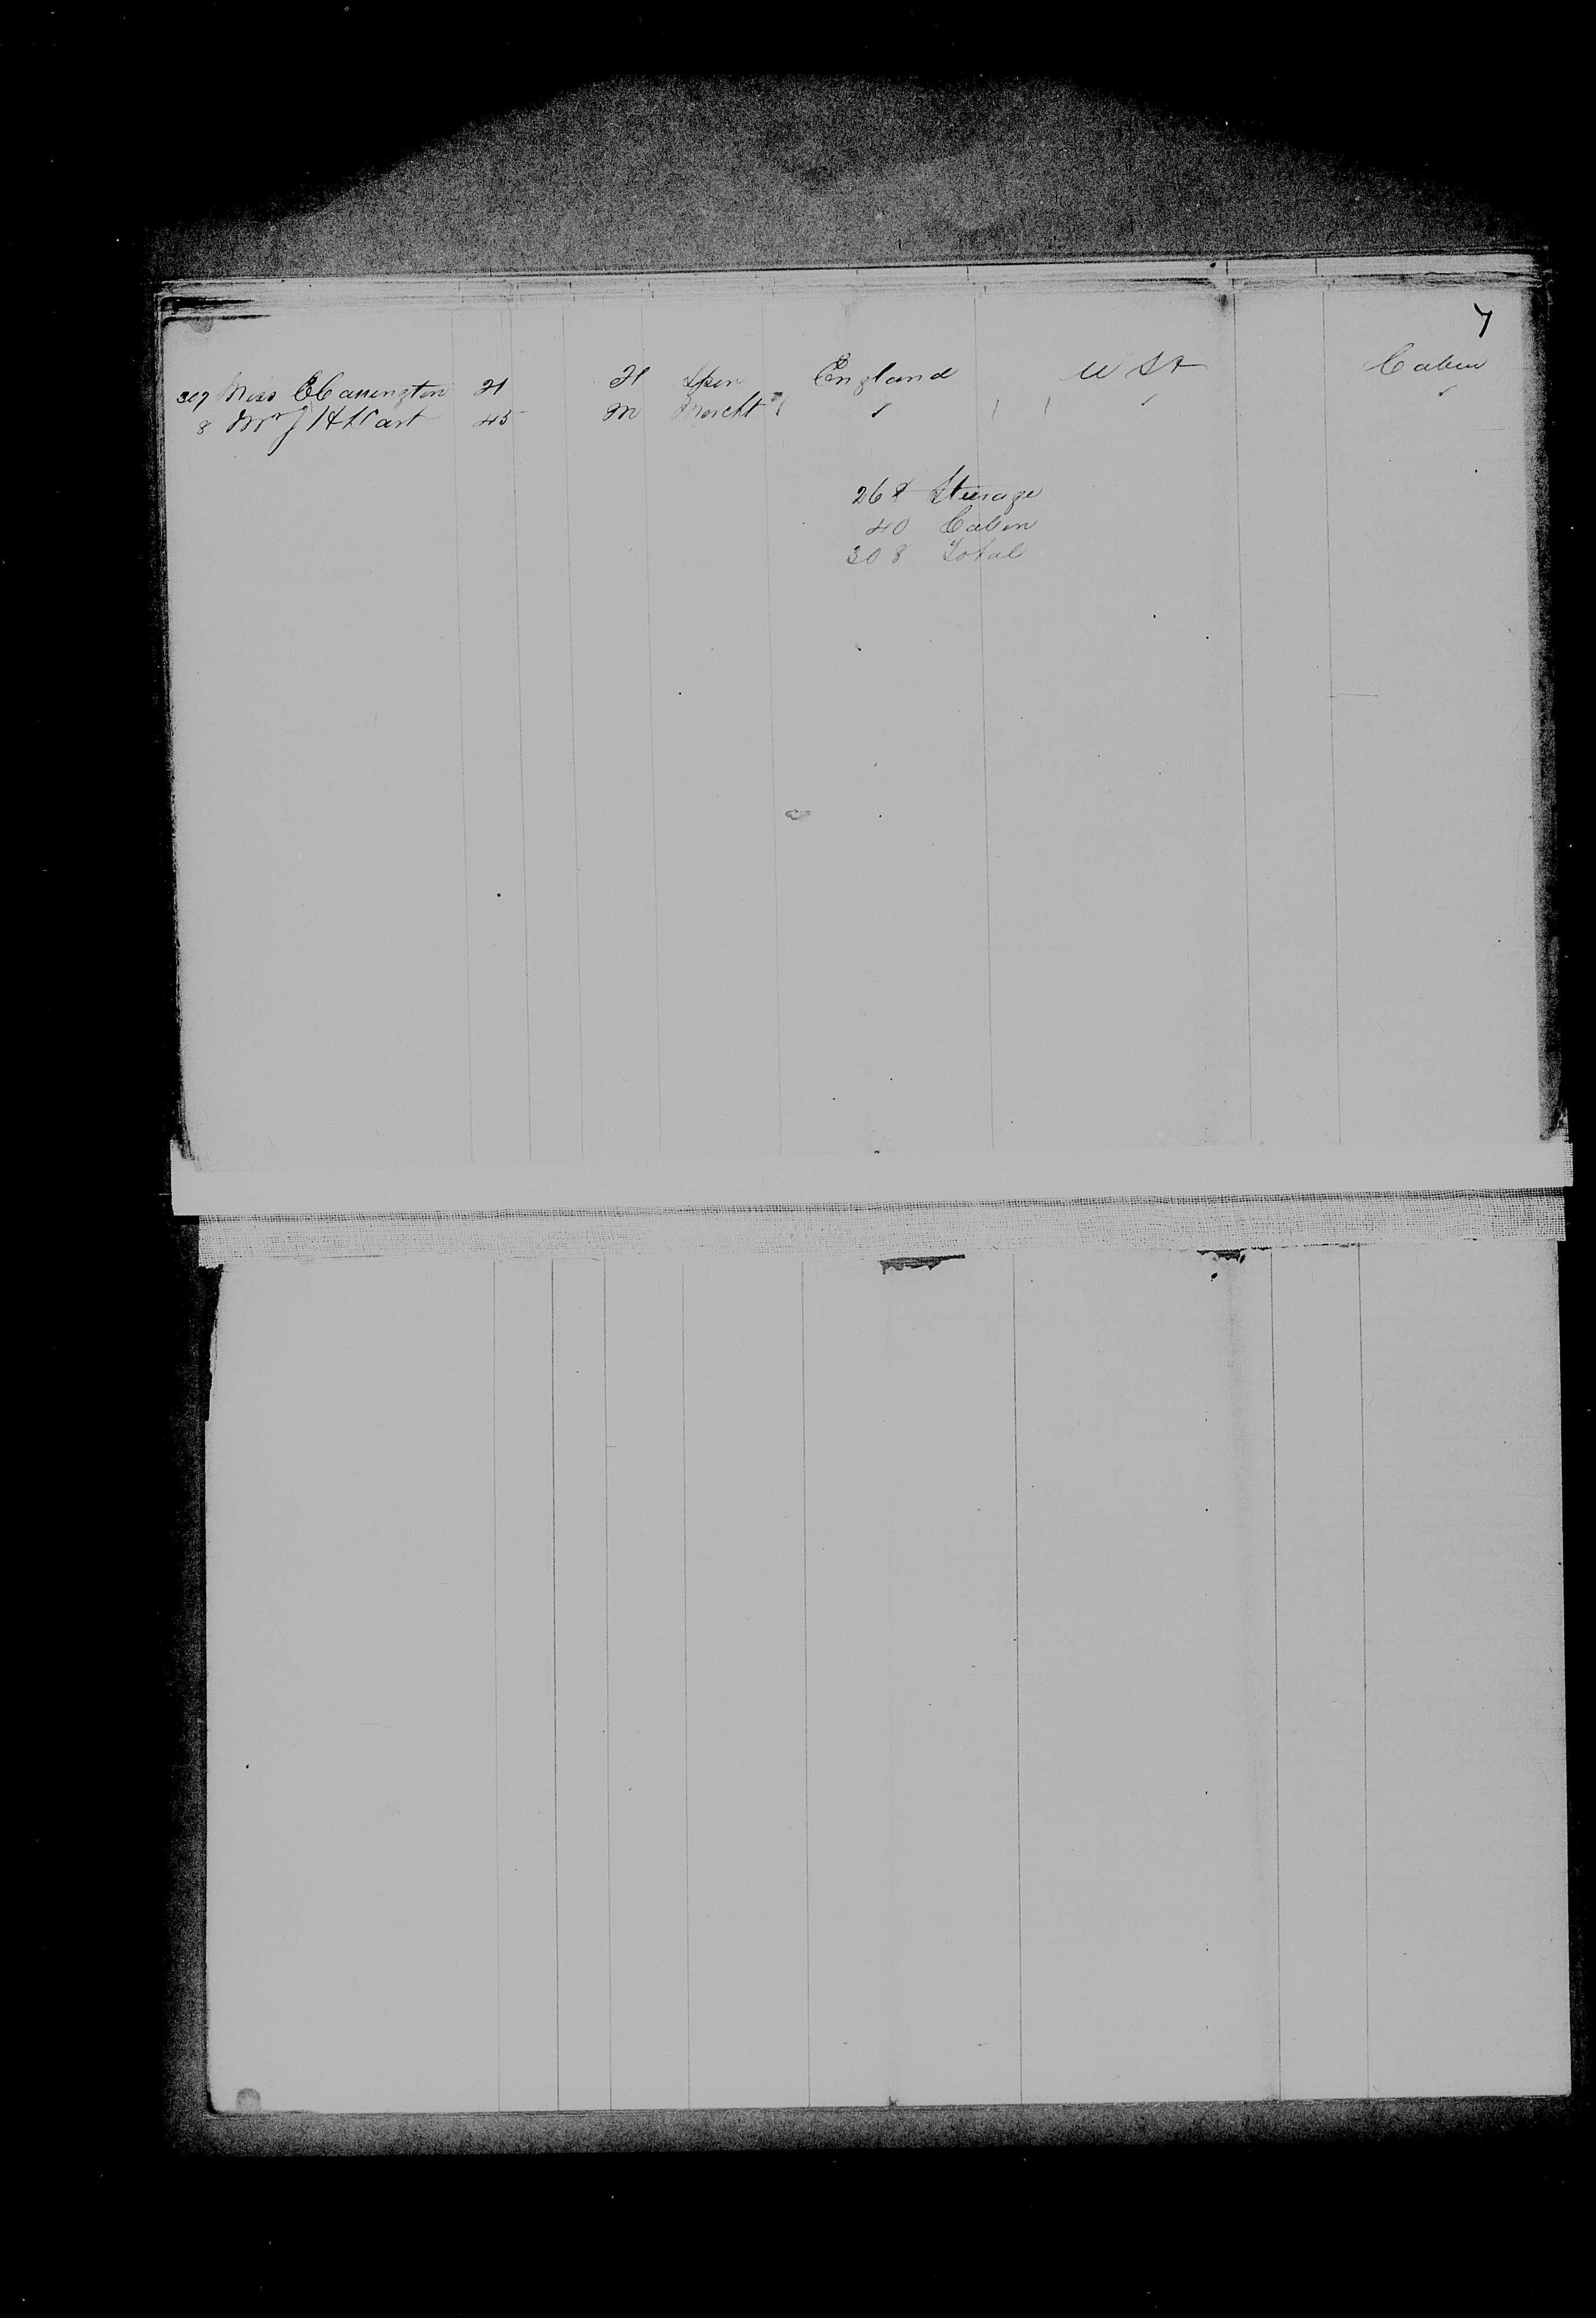 7
307 Miss E Carrington 21 F Spin England U S A Cabin
8 Mr J H Hart 45 M Mercht " " " "
268 Steerage
40 Cabin
308 Total